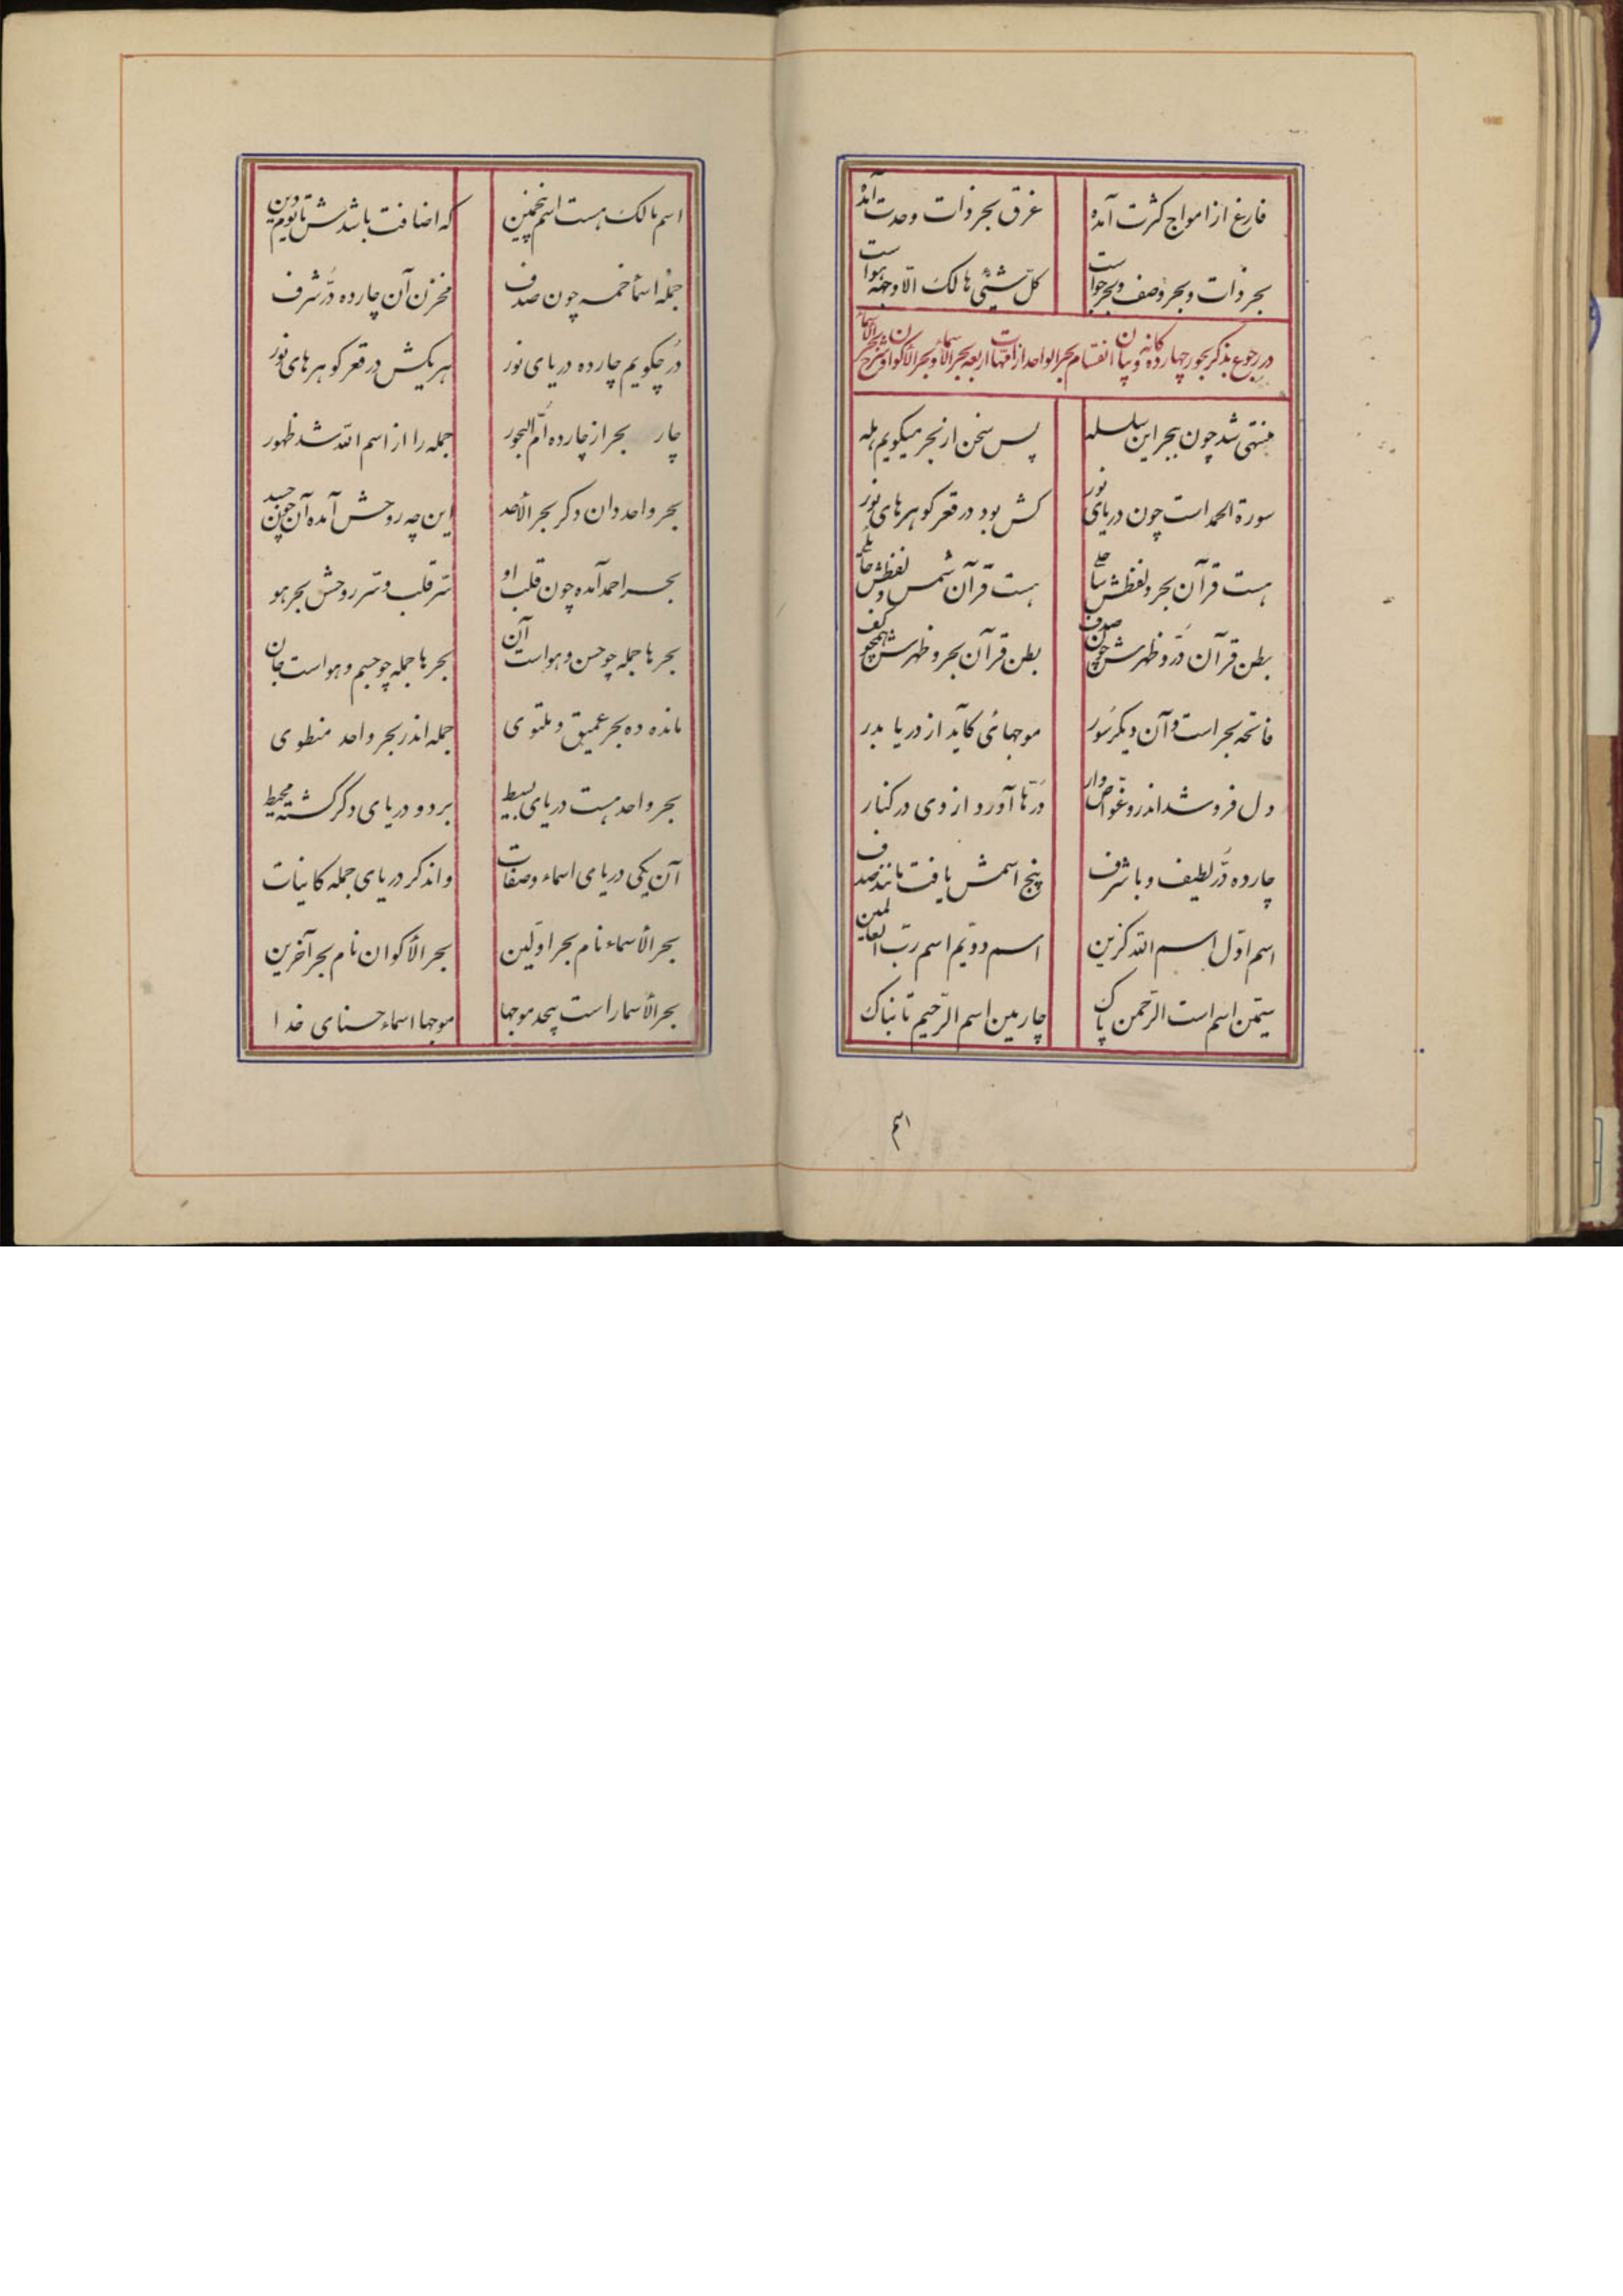 فارغ از امواج کثرت آمده غرق بحر ذات وحدت آمده
بحر ذات و بحر وصف و بحر جواست کل شیئی هالک الا وجهه هواست
در رجوع بذکر بحور چهارده کانه و بیان انقسام بحر الواحد از امهات اربعه ببحر الأسماء و بحر الأکوان و شرح بحر الأسماء
منتهی شد چون ببحر این سلسله پس سخن از بحر میکویم هله
سورة الحمد است چون دریای نور کش بود در قعر کوهرهای نور
هست قرآن بحر و لفظش ساحلی هست قرآن شمس و لفظش حائلی
بطن قرآن در و ظهرش چون صدف بطن قرآن بحر و ظهرش همچو کف
فاتحه بحر است و آن دیکر سور موجهائی کآید از دریا بدر
دل فرو شد اندرو غواص وار درها آورد از وی در کنار
چارده در لطیف و با شرف پنج اسمش یافت مانند صدف
اسم اول اسم الله کزین اسم دویم اسم رب العالمین
سیمن اسم است الرحمن پاک چارمین اسم الرحیم تابناک
اسم
اسم مالک هست اسم پنجمین که اضافت باشدش تا یوم دین
جمله اسما خمسه چون صدف مخزن آن چارده در شرف
در چکویم چارده دریای نور هر یکش در قعر کوهرهای نور
چار بحر از چارده ام البحور جمله را از اسم الله شد ظهور
بحر واحد دان دکر بحر الأحد این چه روحش آمده آن چون جسد
بحر احمد آمده چون قلب او سر قلب و سر روحش بحر هو
بحرها جمله چو حسن و هواست آن بحرها جمله چو جسم و هواست جان
مانده ده بحر عمیق و ملتوی جمله اندر بحر واحد منطوی
بحر واحد هست دریای بسیط بر دو دریای دکر کشته محیط
آن یکی دریای اسماء و صفات و اندکر دریای جمله کاینات
بحر الأسماء نام بحر اولین بحر الأکوان نام بحر آخرین
بحر الأسما راست بیحد موجها موجها اسماء حسنای خدا